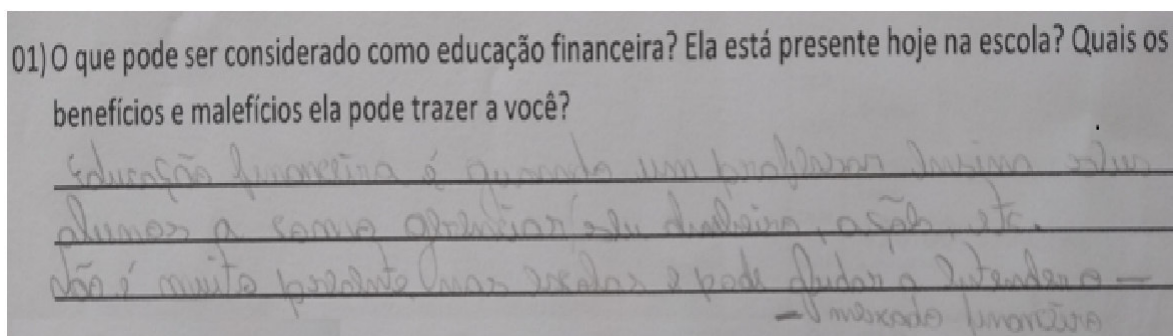 01) O que pode ser considerado como educação financeira? Ela está presente hoje na escola? Quais os
benefícios e malefícios ela pode trazer a você?
Educação financeira é quando um professor ensina seus
alunos a como gerenciar seu dinheiro, ação, etc.
Não é muito presente nas escolas e pode ajudar a entender o —
— mercado financeiro